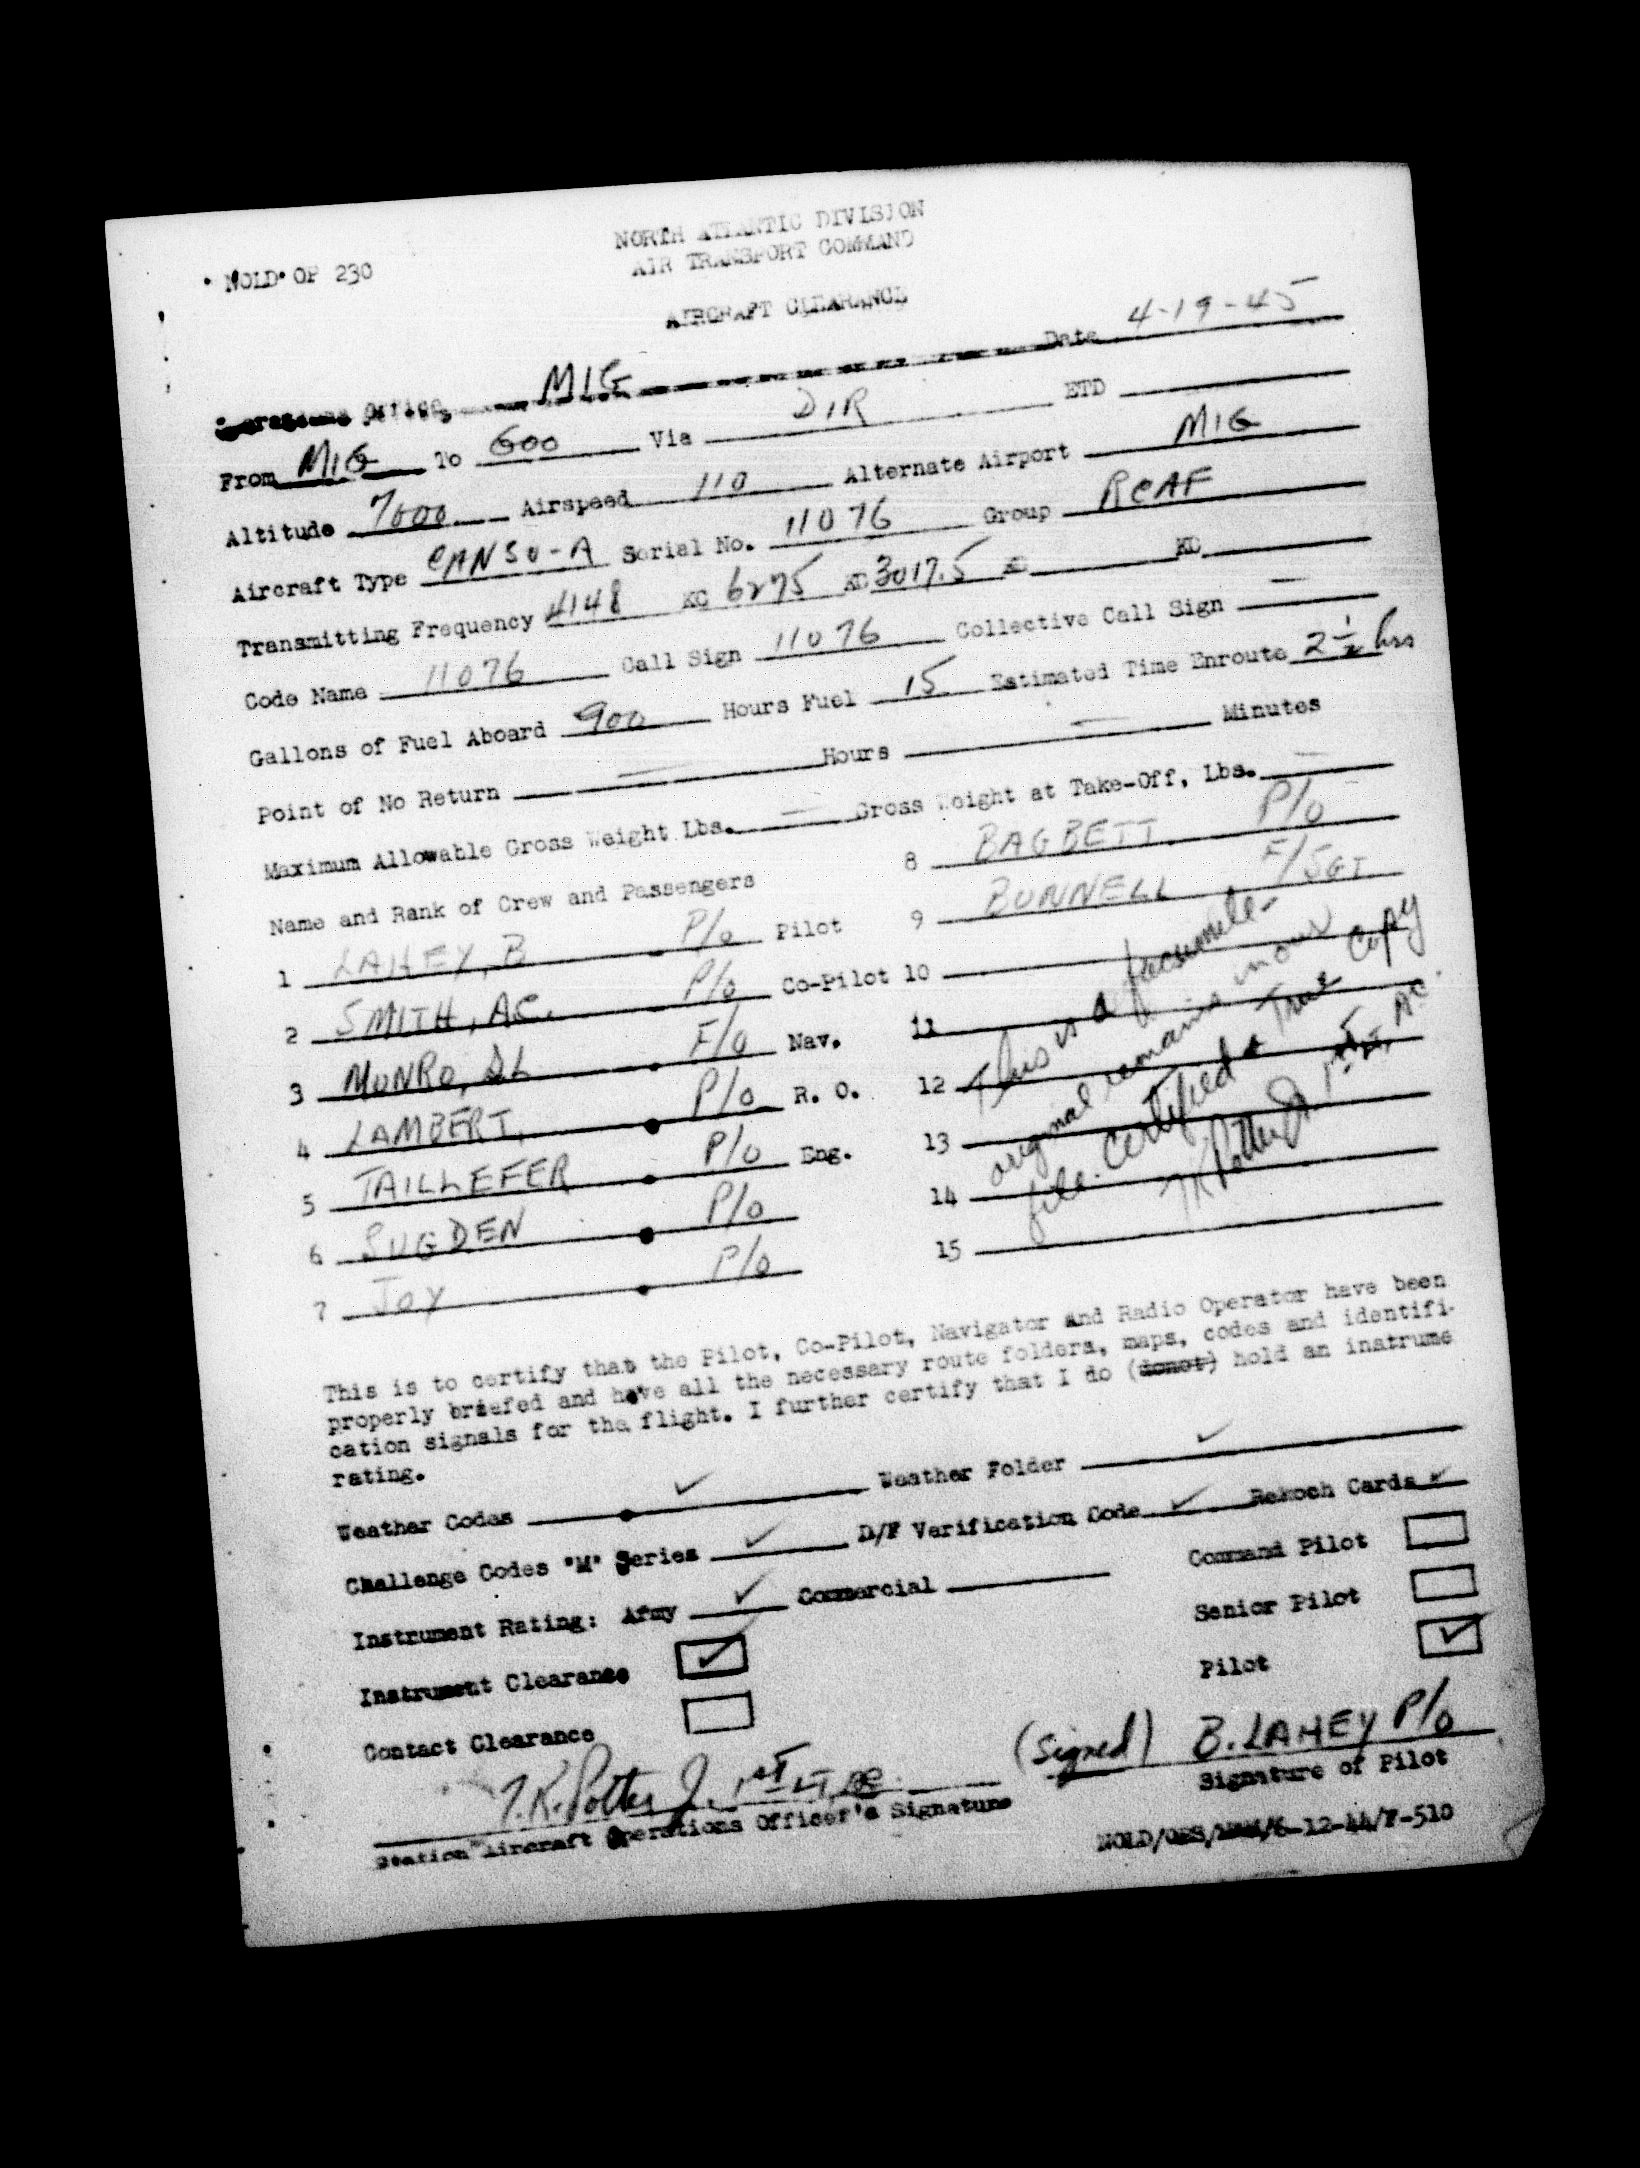 NOLD OP 230
NORTH ATLANTIC DIVISION
AIR TRANSPORT COMMAND
AIRCRAFT CLEARANCE
Operations Office, MIG Date 4-19-45
From MIG To GOO Via DIR ETD
Altitude 7000 Airspeed 110 Alternate Airport MIG
Aircraft Type CANSO-A Serial No. 11076 Group RCAF
Transmitting Frequency 4148 KC 6275 KC 3017.5 KC KC
Code Name 11076 Call Sign 11076 Collective Call Sign —
Gallons of Fuel Aboard 900 Hours Fuel 15 Estimated Time Enroute 2 1/2 hrs
Point of No Return — Hours — Minutes
Maximum Allowable Gross Weight Lbs. — Gross Weight at Take-Off, Lbs. —
Name and Rank of Crew and Passengers
1 LAHEY, B P/O Pilot
2 SMITH, AC. P/O Co-Pilot
3 MUNRO, DL F/O Nav.
4 LAMBERT, P/O R. O.
5 TAILLEFER P/O Eng.
6 SUGDEN P/O
7 JOY P/O
8 BAGBETT P/O
9 BUNNELL F/SGT
10
11
12
13
14
15
This is a facsimile-
original remains in our
file. Certified a True Copy
TK Potter Jr 1st LT, AC.
This is to certify that the Pilot, Co-Pilot, Navigator and Radio Operator have been
properly briefed and have all the necessary route folders, maps, codes and identifi-
cation signals for the flight. I further certify that I do (donot) hold an instrume
rating.
Weather Codes ✓ Weather Folder ✓
Challenge Codes "M" Series ✓ D/F Verification Code ✓ Rekoch Cards ✓
Instrument Rating: Army ✓ Commercial Command Pilot
Instrument Clearance ✓ Senior Pilot
Contact Clearance Pilot ✓
T.K. Potter Jr. 1st LT, AC. (signed) B. LAHEY P/O
Station Aircraft Operations Officer's Signature Signature of Pilot
6-12-44/F-510